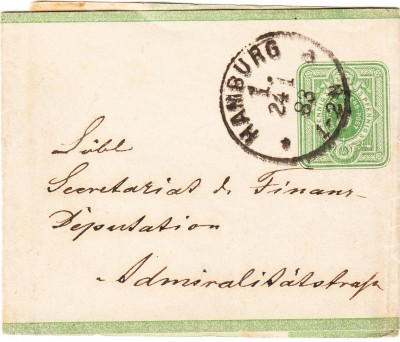 HAMBURG a
1.
24 1
83
1-2N
Löbl
Secretariat d. Finanz-
Deputation
Admiralitätstraße